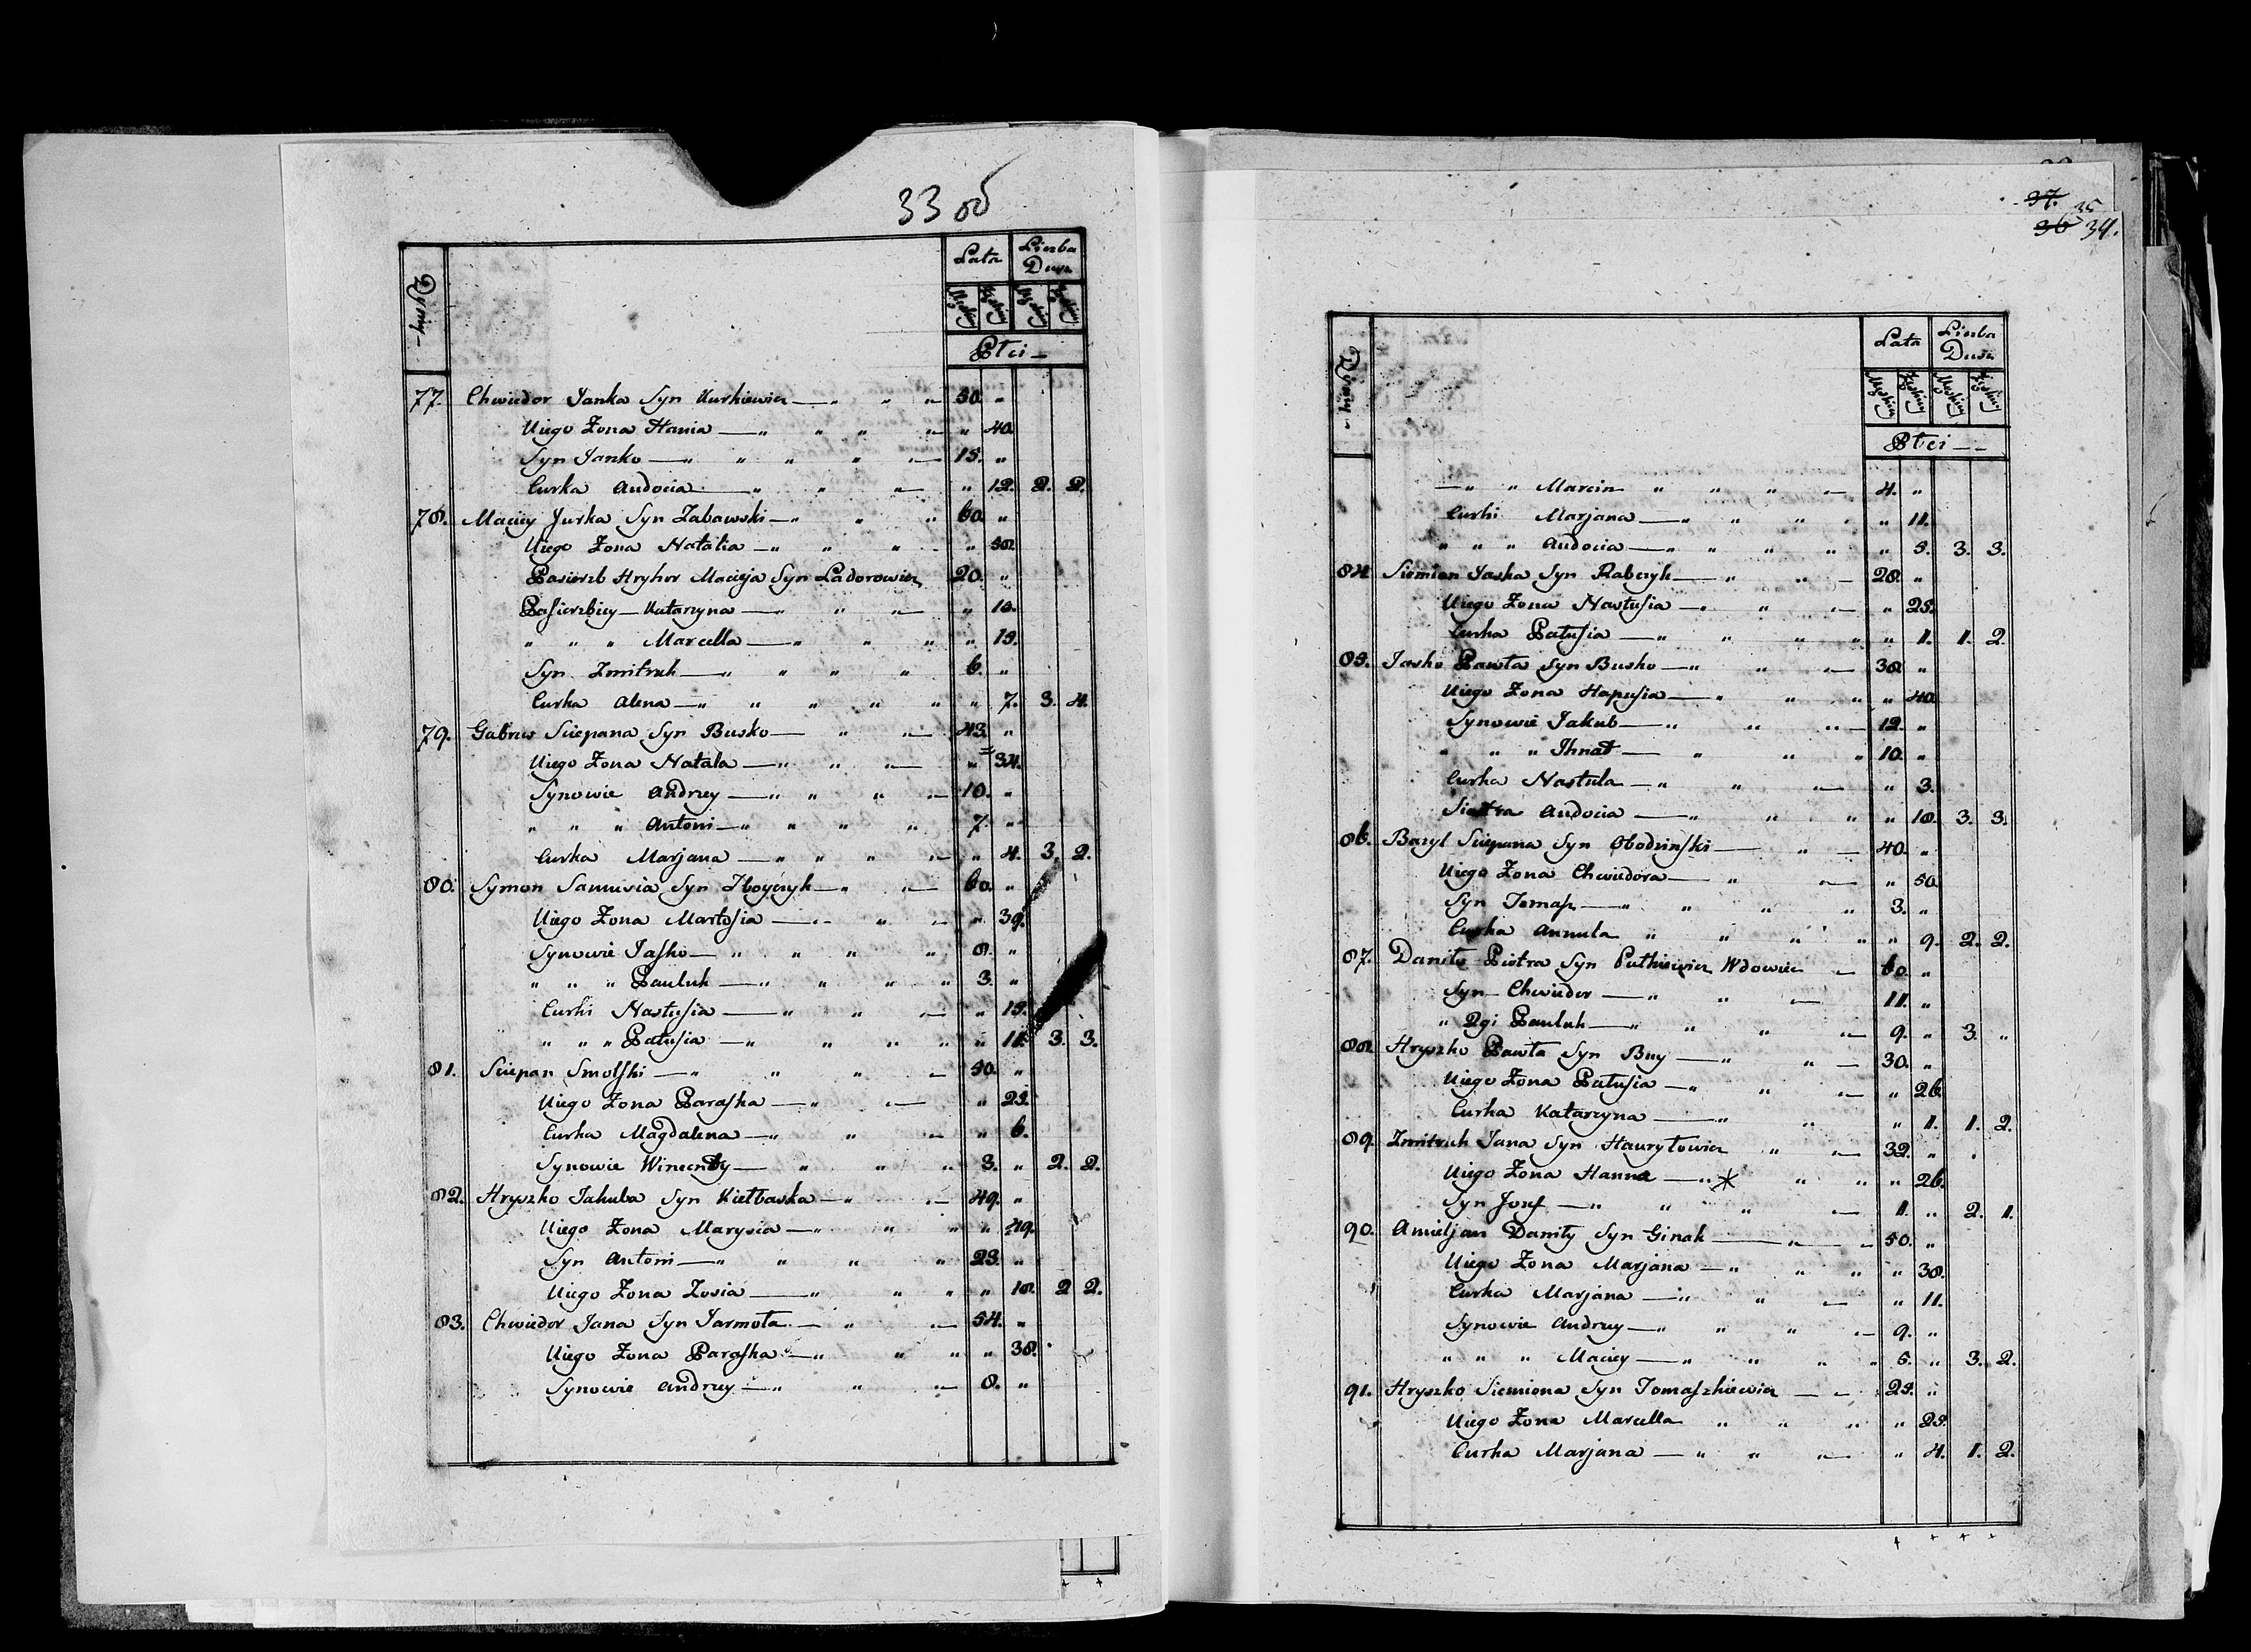 33 об
Dymy
Lata Liczba Dusz
Męskiey Żeńskiey Męskiey Żeńskiey
Płci
77. Chwiedor Janka Syn Kurkiewicz — " " " 50. "
Uiego Zona Hania — " " " " 40.
Syn Janko — " " " " 15. "
Curka Audocia — " " " " 12. 2. 2.
78. Maciey Jurka Syn Zabawski — " " " 60. "
Uiego Zona Natalia — " " " "
Pasierzb Hryhor Macieja Syn Ladorowicz 20. "
Pasierzbicy — Katarzyna — " " " "
" " " Marcella — " " " " 15.
Syn Zmitruk — " " " " 6. "
Curka Alena — " " " " " 7. 3. 4.
79. Gabrus Sciepana Syn Busko — " " 43. "
Uiego Zona Natala — " " " " 34.
Synowie Andrzey — " " " " 10. "
" " " Antoni — " " " " 7. "
Curka Marjana — " " " " " 4. 3. 2.
80. Symon Samusia Syn Zboyczyk — " " 60. "
Uiego Zona Martosia — " " " " 39.
Synowie Jasko — " " " " 8. "
" " " Pauluk — " " " " 3. "
Curki Nastusia — " " " " 15.
" " " Patusia — " " " " " 11. 3. 3.
81. Sciepan Smolski — " " " 50. "
Uiego Zona Paraska — " " " 25.
Curka Magdalena — " " " " 6.
Synowie Wincenty — " " " 3. " 2. 2.
82. Hryszko Jakuba Syn Kiełbaska — " " 49. "
Uiego Zona Marysia — " " " " 49.
Syn Antoni — " " " " 23. "
Uiego Zona Zosia — " " " " 18. 2 2.
83. Chwiedor Jana Syn Jarmota — " " 54. "
Uiego Zona Paraska — " " " " 38.
Synowie Andrzey — " " " 8. "
37. 35
36 34.
Dymy
Lata Liczba Dusz
Męskiey Żeńskiey Męskiey Żeńskiey
Płci
— " " Marcin " " " " 4. "
Curki Marjana — " " " " " 11.
" " " Audocia — " " " " " 5. 3. 3.
84. Siemion Jaska Syn Rabczyk — " " 28. "
Uiego Zona Nastusia — " " " " 25.
Curka Patusia — " " " " " 1. 1. 2.
85. Jasko Pawła Syn Busko — " " " 38. "
Uiego Zona Hapusia — " " " " 40.
Synowie Jakub — " " " 12. "
" " " Ihnat — " " " 10. "
Curka Nastula — " " " " 3.
Siostra Audocia — " " " " 18. 3. 3.
86. Bazyl Sciepana Syn Obodzinski — " 40. "
Uiego Zona Chwiedora — " " " 50.
Syn Tomasz — " " " " 3. "
Curka Annula " " " " " 9. 2. 2.
87. Daniło Piotra Syn Putkiewicz Wdowiec 60. "
Syn — Chwiedor — " " " 11. "
" 2gi Pauluk — " " " " 9. " 3. "
88. Hryszko Pawła Syn Buy — " " 30. "
Uiego Zona Patusia — " " " " 26.
Curka Katarzyna — " " " 1. 1. 2.
89. Zmitruk Jana Syn Hauryłowicz " " 32. "
Uiego Zona Hanna — " * " " " 26.
Syn Jozef — " " " " 1. " 2. 1.
90. Amieljan Daniły Syn Ginak — " 50. "
Uiego Zona Marjana — " " " " 38.
Curka Marjana — " " " " 11.
Synowie Andrzey — " " " " 9. "
" " " Maciey — " " " " 5. " 3. 2.
91. Hryszko Siemiona Syn Tomaszkiewicz — 25. "
Uiego Zona Marcella " " " " 25.
Curka Marjana — " " " " 4. 1. 2.